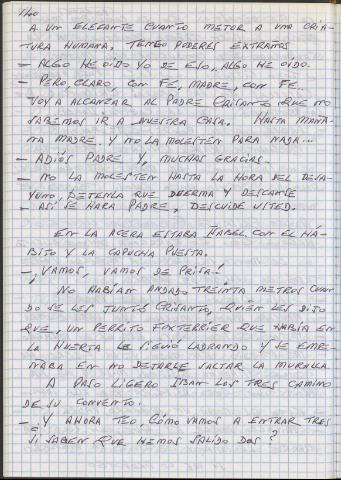 A UN ELEFANTE CUANTO MEJOR A UNA CRIA-
TURA HUMANA. TENGO PODERES EXTRAÑOS
– ALGO HE OIDO YO DE ESO, ALGO HE OIDO.
– PERO, CLARO, CON FE, MADRE, CON FE..
VOY A ALCANZAR AL PADRE CRISANTO QUE NO
SABEMOS IR A NUESTRA CASA. HASTA MAÑA-
NA MADRE. Y NO LA MOLESTEN PARA NADA...
– ADIÓS PADRE Y, MUCHAS GRACIAS.
– NO LA MOLESTEN HASTA LA HORA DEL DESA-
YUNO, DEJENLA QUE DUERMA Y DESCANSE
– ASÍ SE HARA PADRE, DESCUIDE USTED.
EN LA ACERA ESTABA ISABEL CON EL HÁ-
BITO Y LA CAPUCHA PUESTA.
– ¡VAMOS, VAMOS DE PRISA!
NO HABÍAN ANDADO TREINTA METROS CUAN-
DO SE LES JUNTÓ CRISANTO, QUIÉN LES DIJO
QUE, UN PERRITO FOXTERRIER QUE HABÍA EN
LA HUERTA LE SIGUIÓ LADRANDO Y SE EMPE-
ÑABA EN NO DEJARLE SALTAR LA MURALLA
A PASO LIGERO IBAN LOS TRES CAMINO
DE SU CONVENTO.
– ¿Y AHORA TEO, CÓMO VAMOS A ENTRAR TRES
SI SABEN QUE HEMOS SALIDO DOS?